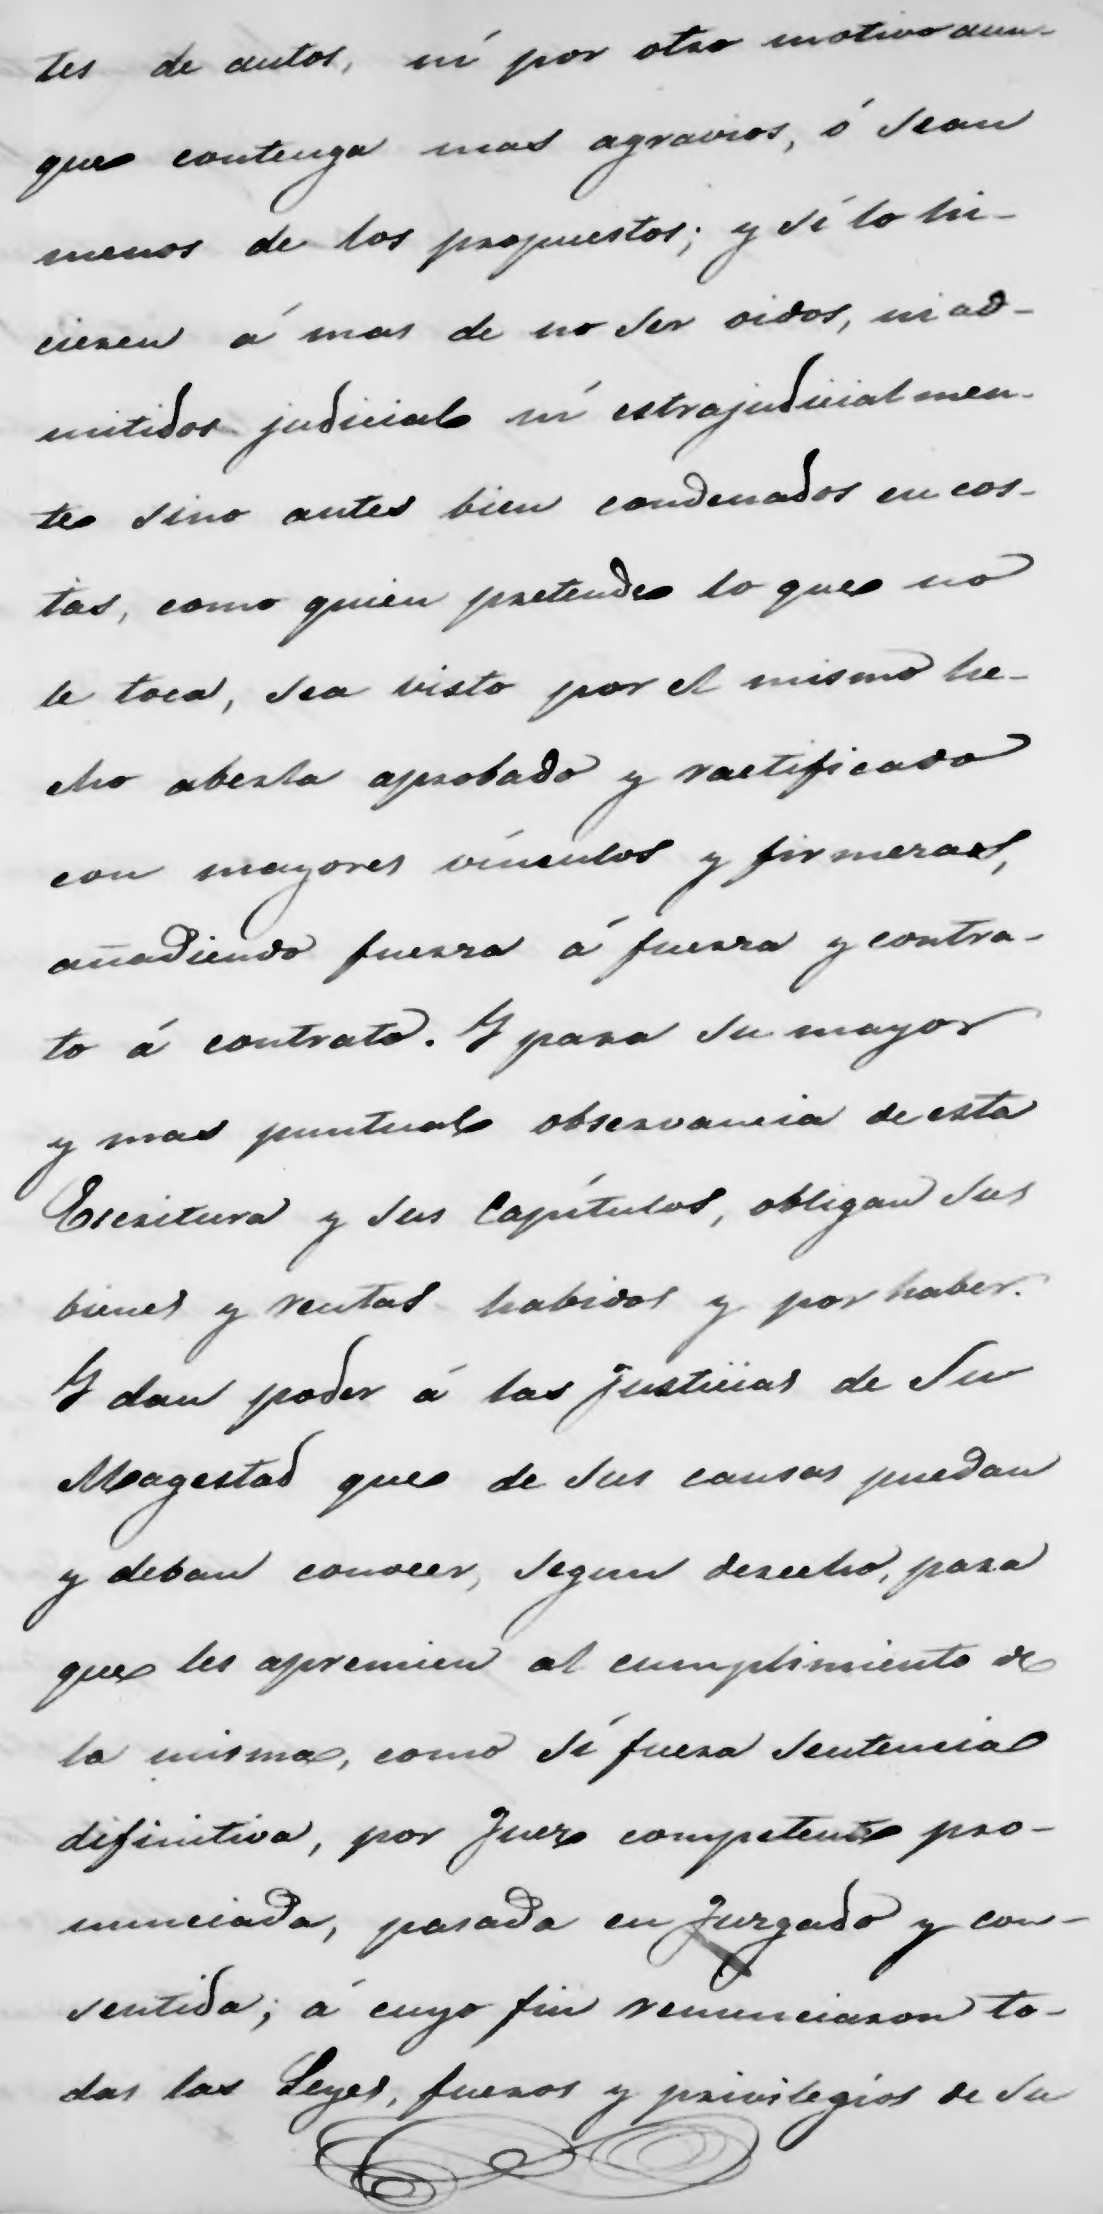 tes de autos, ní por otro motivo aun-
que contenga mas agravios, ó sean
menos de los propuestos; y sí lo hi-
cieren á mas de no ser oidos, ni ad-
mitidos judicial ní estrajudicialmen-
te sino antes bien condenados en cos-
tas, como quien pretende lo que no
le toca, sea visto por el mismo he-
cho aberla aprobado y ractificado
con mayores vínculos y firmezas,
añadiendo fuerza á fuerza y contra-
to á contrato. Y para su mayor
y mas puntual observancia de esta
Escritura y sus Capítulos, obligan sus
bienes y rentas habidos y por haber.
Y dan poder á las Justicias de Su
Magestad que de sus causas puedan
y deban conocer, segun derecho, para
que les apremien al cumplimiento de
la misma, como sí fuera sentencia
difinitiva, por Juez competente pro-
nunciada, pasada en Juzgado y con-
sentida; á cuyo fin renunciaron to-
das las Leyes, fueros y privilegios de su